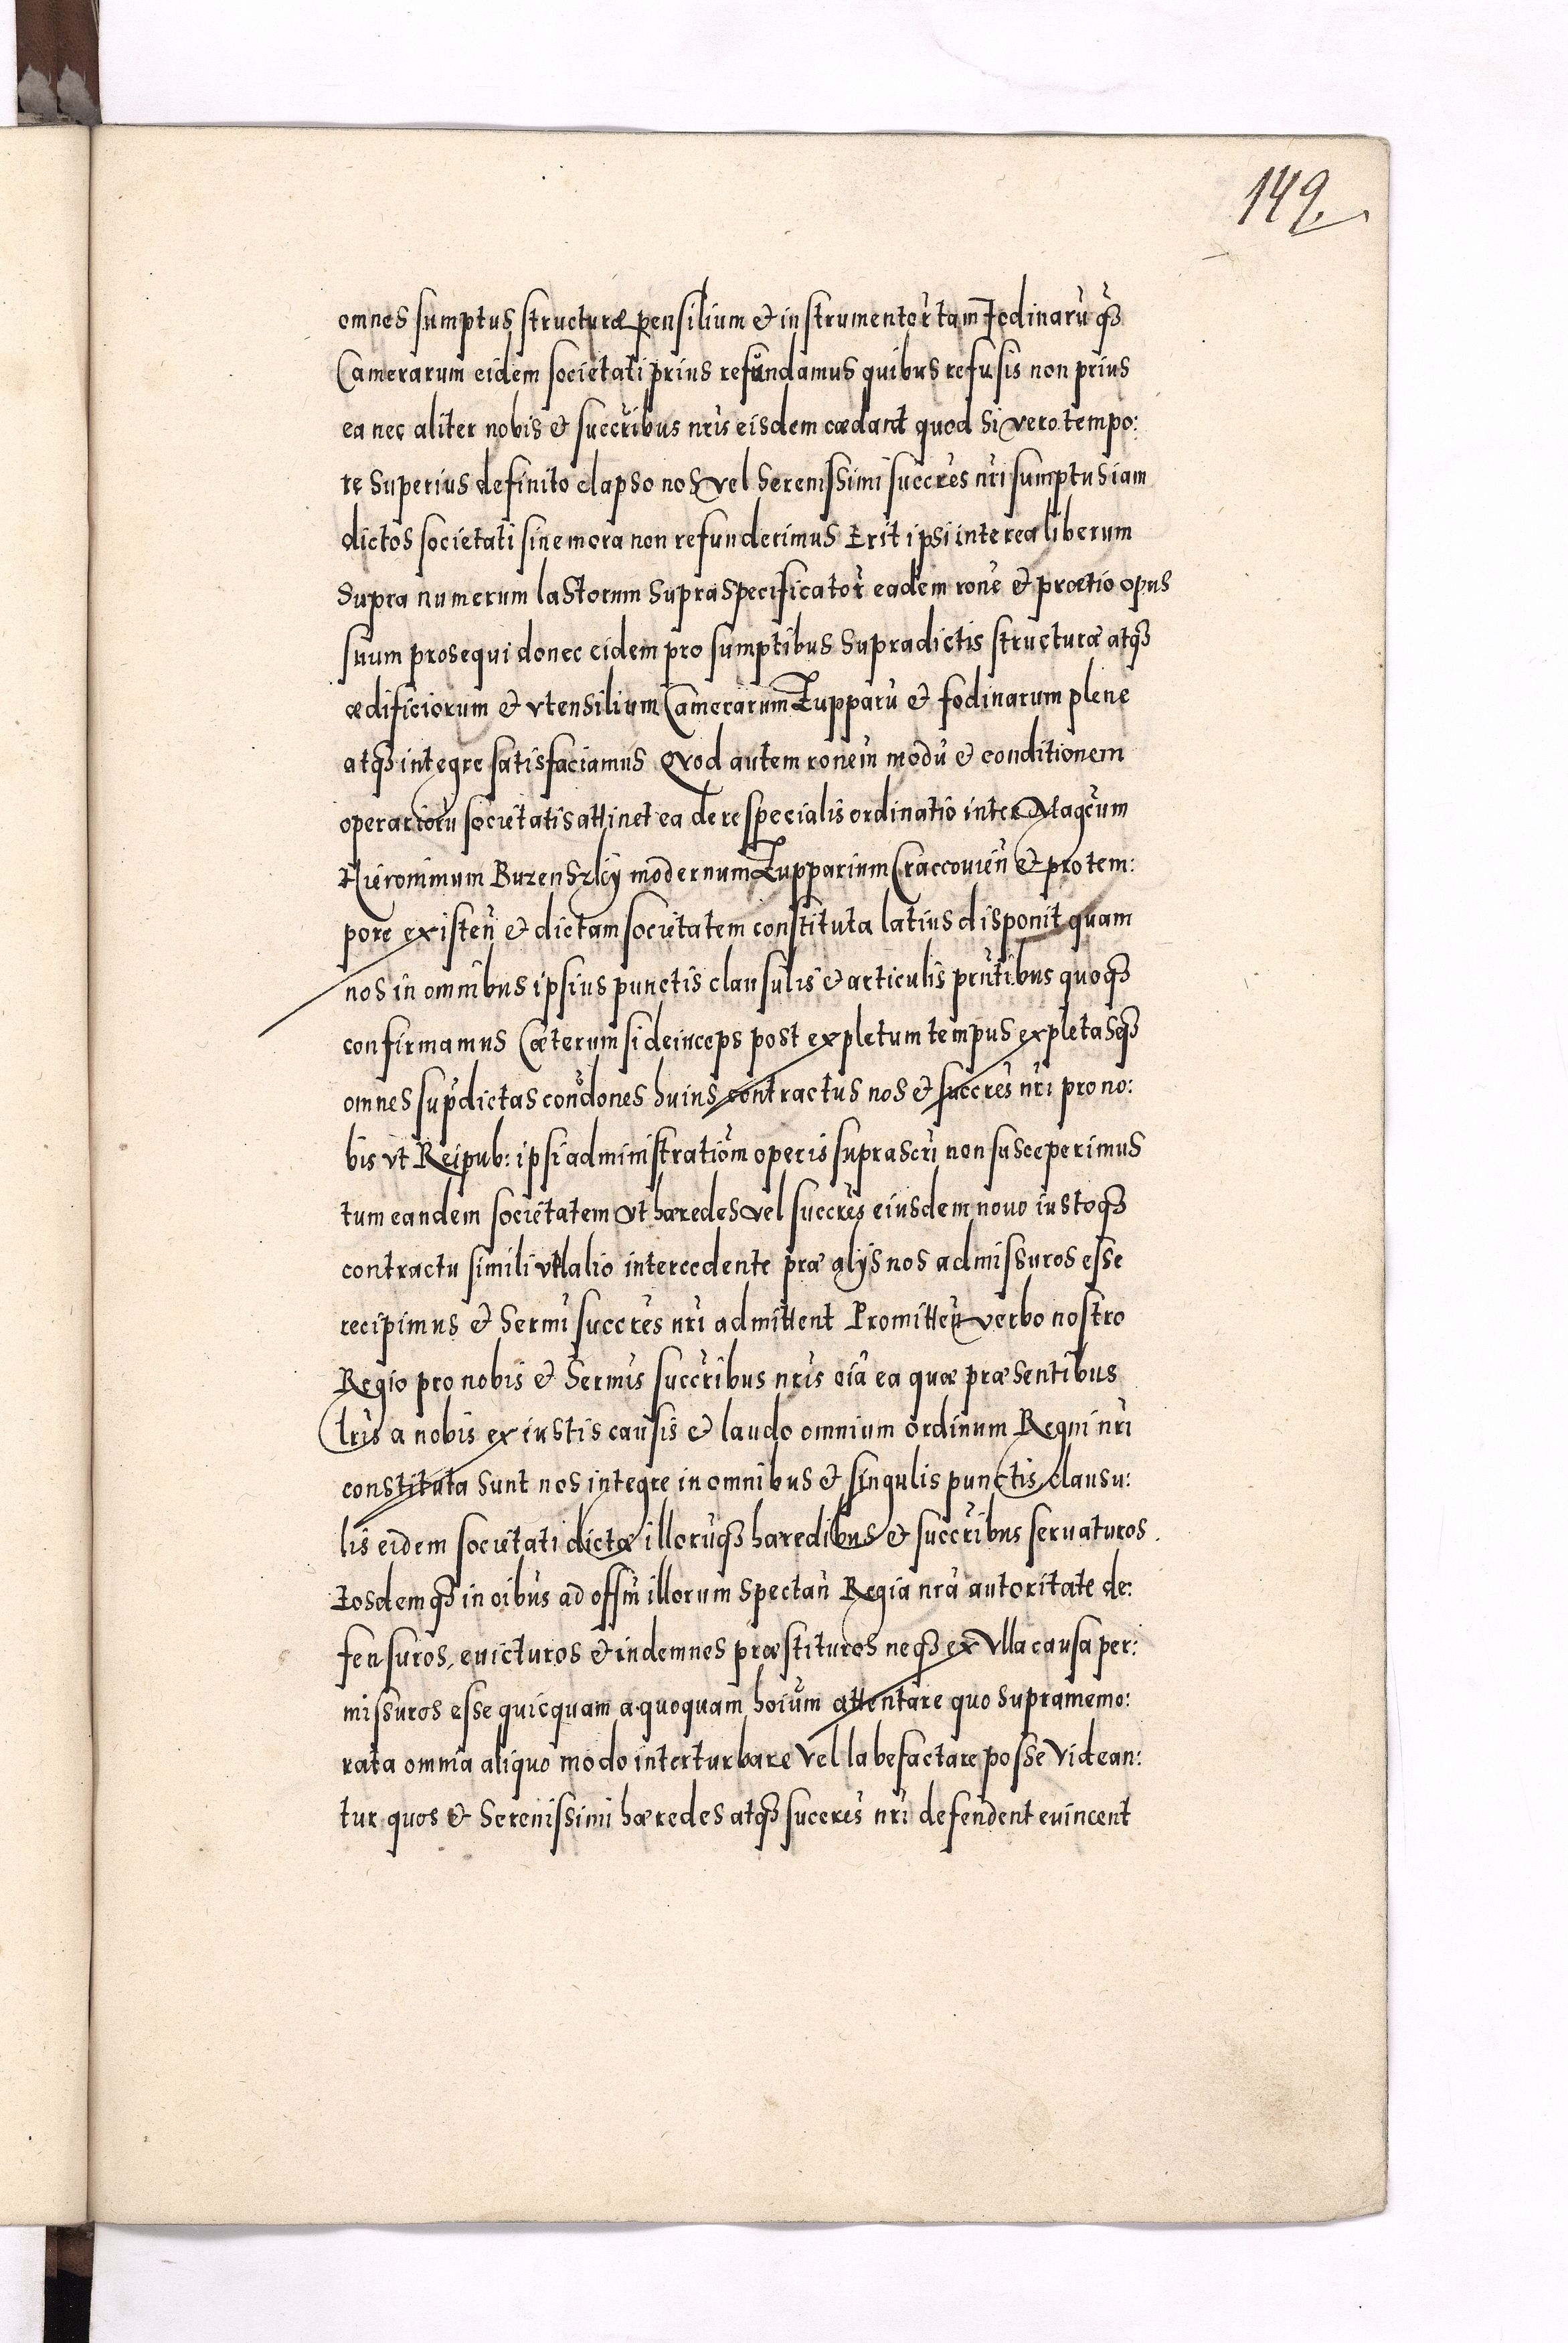 149.
omnes sumptus structuræ pensilium & instrumentor̃ tam Fodinarũ q̃ꝫ
Camerarum eidem societati prius refundamus quibus refusis non prius
ea nec aliter nobis & succr̃ibus nr̃is eisdem cædant quod si vero tempo:
re superius definito elapso nos vel Serenissimi succr̃es nr̃i sumptus iam
dictos societati sine mora non refunderimus Erit ipsi interea liberum
supra numerum lastorum supraspecificator̃ eadem ronẽ & prætio opus
suum prosequi donec eidem pro sumptibus supradictis structuræ atqꝫ
ædificiorum & vtensilium Camerarum Zupparũ & fodinarum plene
atqꝫ integre satisfaciamus Qvod autem ronẽm modũ & conditionem
operariorũ societatis attinet ea de re specialis ordinatio inter Magc̃um
Hieronimum Buzenszkÿ modernum Zupparium Craccovień & pro tem:
pore existeñ & dictam societatem constituta latius disponit quam
nos in omnibus ipsius punctis clausulis & articulis prñtibus quoqꝫ
confirmamus Cæterum si deinceps post expletum tempus expletasqꝫ
omnes sup̃dictas coñdones huius contractus nos & succr̃es nr̃i pro no:
bis vt Reipub: ipsi administratiõm operis suprascr̃i non susceperimus
tum eandem societatem vt hæredes vel succr̃es eiusdem novo iustoqꝫ
contractu simili vtl alio intercedente præ alijs nos admissuros esse
recipimus & Sermĩ succr̃es nr̃i admittent Promitteñ verbo nostro
Regio pro nobis & Sermĩs succr̃ibus nr̃is oĩa ea quæ præsentibus
lr̃is a nobis ex iustis causis & laudo omnium ordinum Regni nr̃i
constituta sunt nos integre in omnibus & singulis punctis clausu:
lis eidem societati dictæ illorũqꝫ hæredibus & succr̃ibus servaturos.
Eosdemqꝫ in oĩbus ad offm̃ illorum spectañ Regia nr̃a autoritate de:
fensuros, evicturos & indemnes præstituros neqꝫ ex vlla causa per:
missuros esse quicquam a quoquam hoĩum attentare quo supramemo:
rata omnia aliquo modo interturbare vel labefactare posse videan:
tur quos & Serenissimi hæredes atqꝫ succr̃es nr̃i defendent evincent